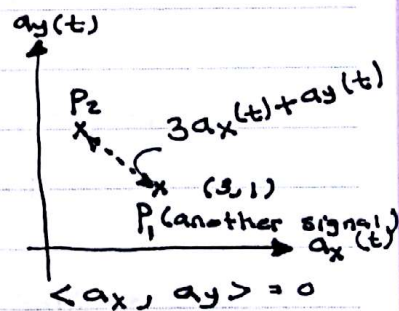 ay(t)
P2
3ax(t)+ay(t)
(3,1)
P1 (another signal)
ax(t)
<ax, ay> = 0